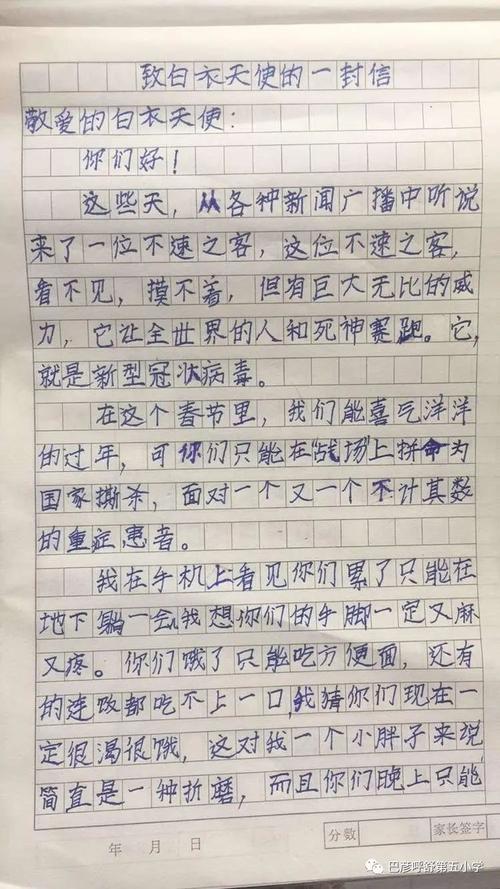 致白衣天使的一封信
敬爱的白衣天使：
你们好！
这些天，从各种新闻广播中听说
来了一位不速之客，这位不速之客，
看不见，摸不着，但有巨大无比的威
力，它让全世界的人和死神赛跑。它，
就是新型冠状病毒。
在这个春节里，我们能喜气洋洋
的过年，可你们只能在"战场"上拼命为
国家撕杀，面对一个又一个不计其数
的重症患者。
我在手机上看见你们累了只能在
地下躺一会，我想你们的手脚一定又麻
又疼。你们饿了只能吃方便面，还有
的连饭都吃不上一口，我猜你们现在一
定很渴很饿，这对我一个小胖子来说
简直是一种折磨，而且你们晚上只能
年 月 日
分数 家长签字
巴彦呼舒第五小学